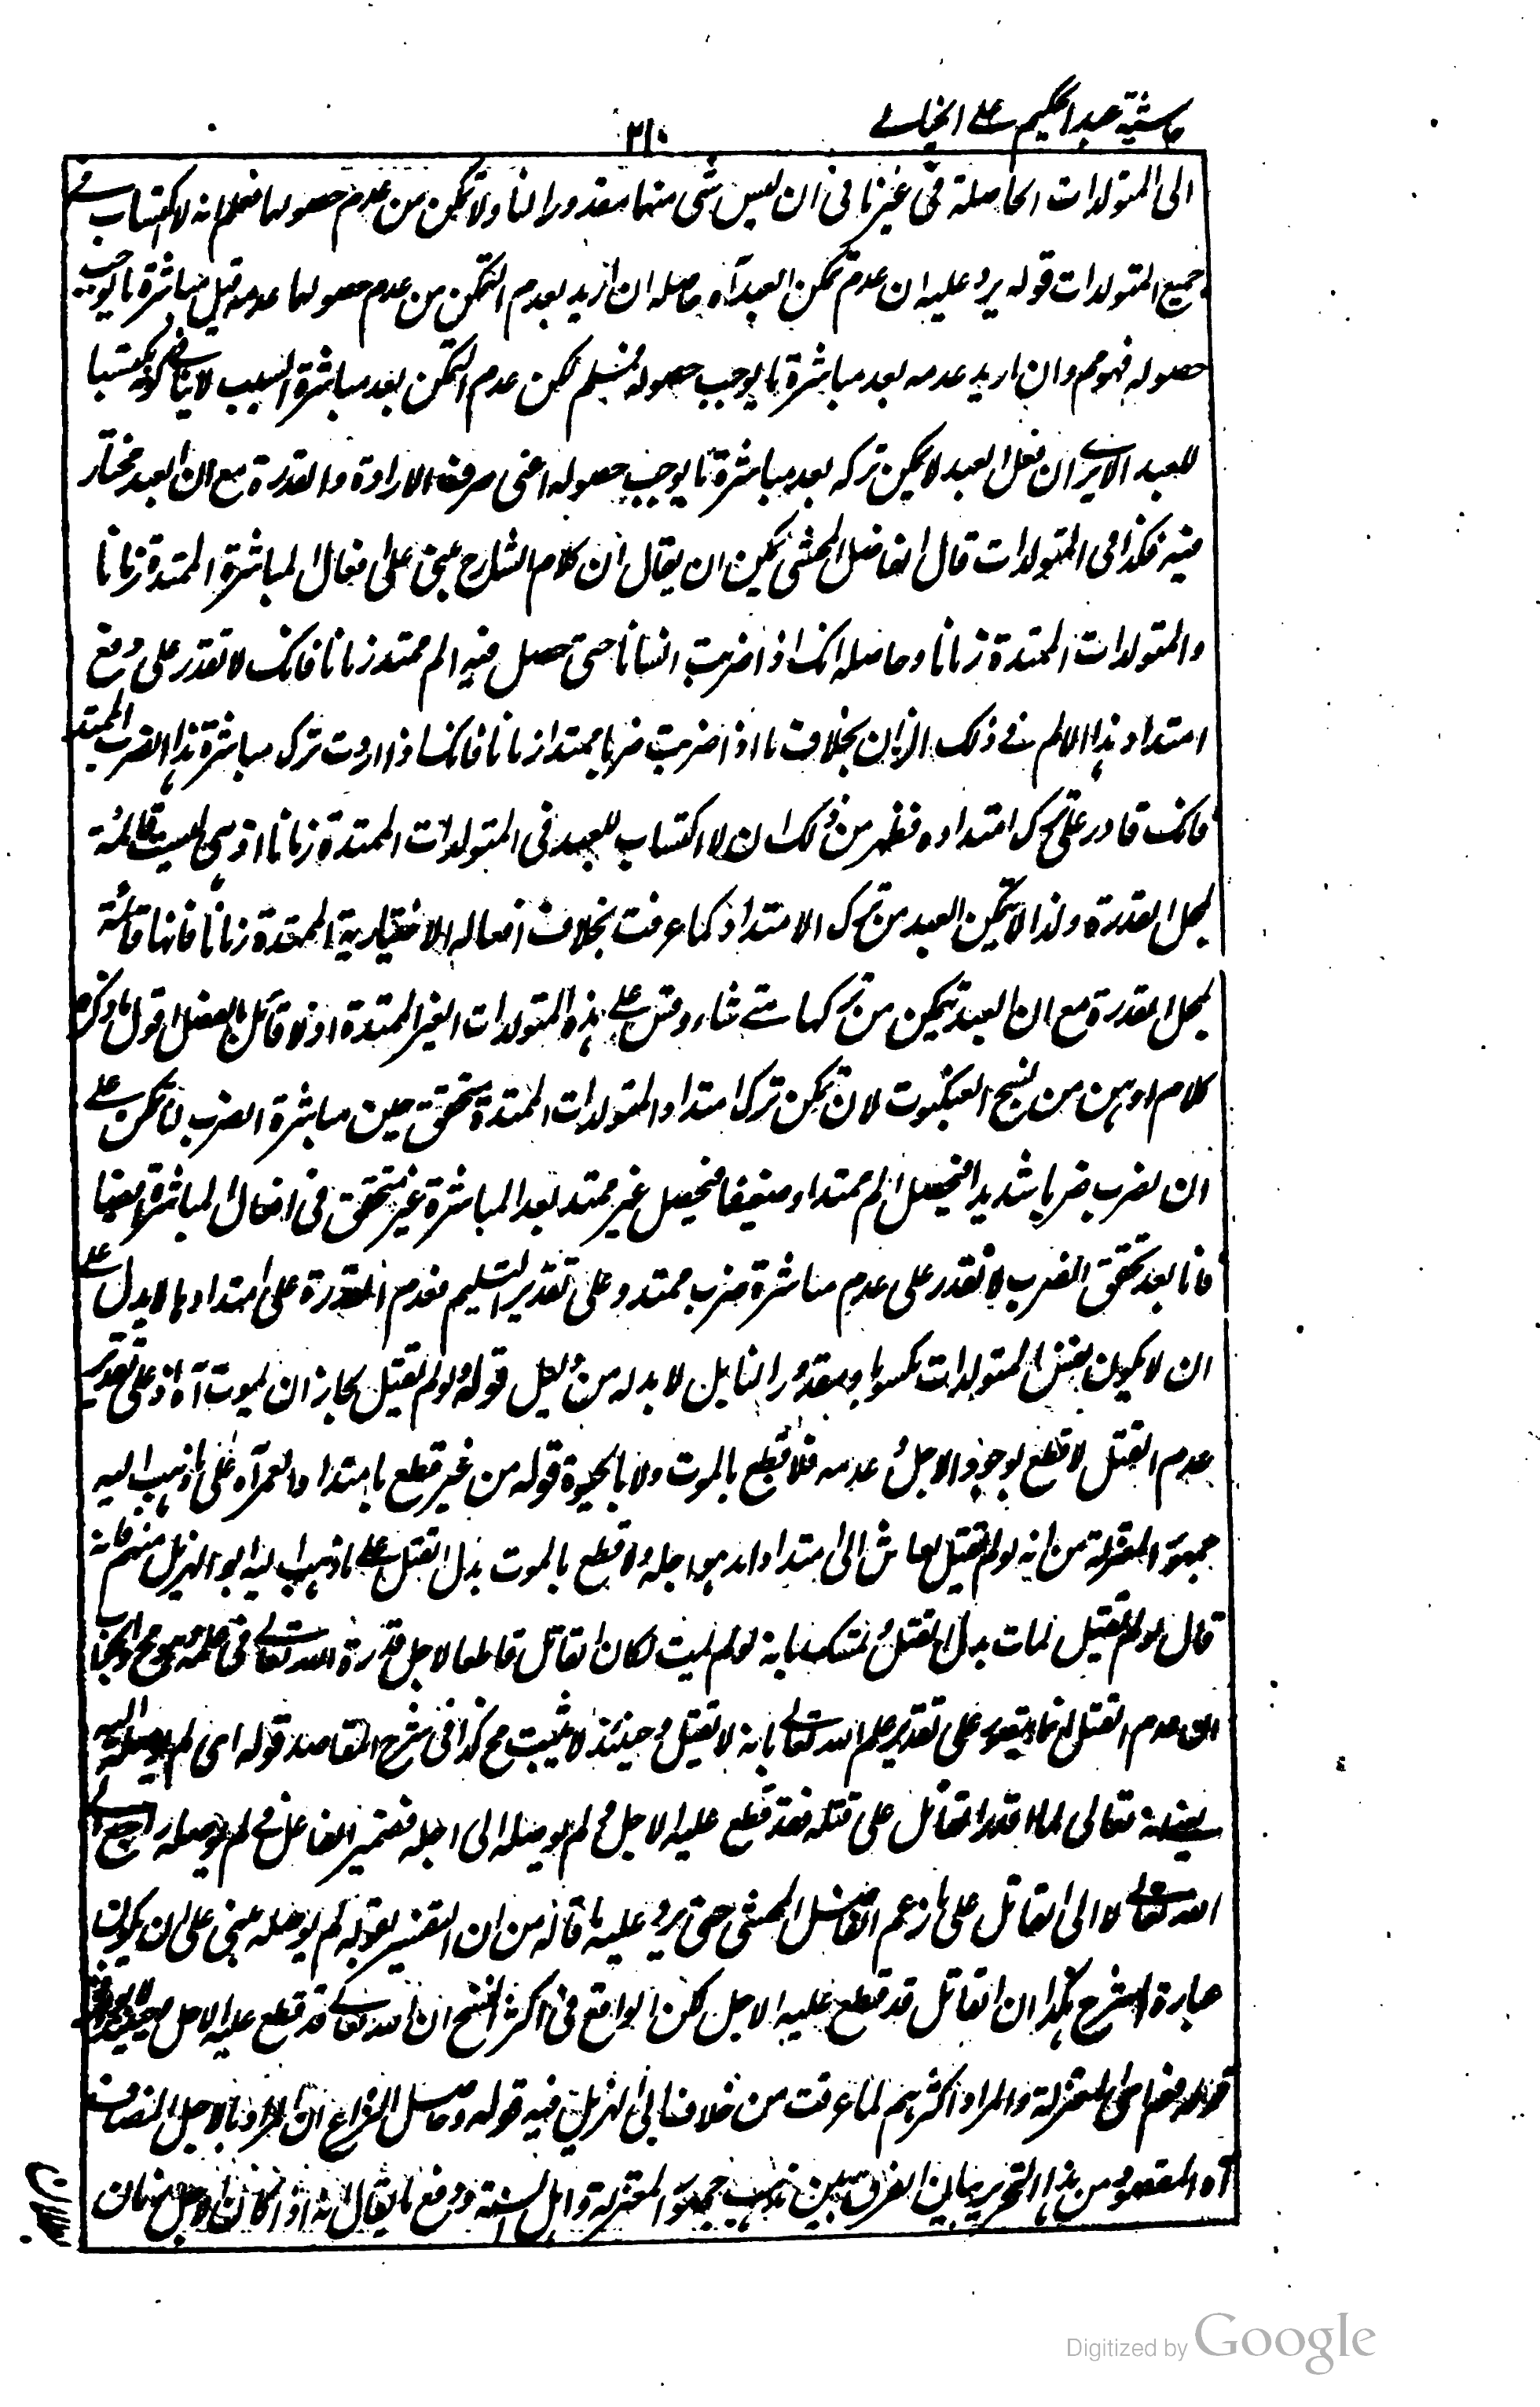 حاشية عبد الحكيم على الخيالى
٢١٠
الى المتولدات الحاصلة فى غيرنا فى ان ليس شى منها مقدورا لنا ولا نتمكن من عدم حصولها فعلم انه لا اكتساب فى
جميع المتولدات قوله يرد عليه ان عدم تمكن العبد آه حاصله ان اريد بعدم التمكن من عدم حصولها عدمه قبل مباشرة ما يوجب
حصوله فهو مم وان اريد عدمه بعد مباشرة ما يوجب حصوله فمسلم لكن عدم التمكن بعد مباشرة السبب لا ينافى كونه مكتسبا
للعبد الا يرى ان فعل العبد لا يمكن تركه بعد مباشرة ما يوجب حصوله اعنى صرف الارادة والقدرة مع ان العبد مختار
فيه فكذا فى المتولدات قال الفاضل المحشى يمكن ان يقال ان كلام الشارح مبنى على افعال المباشرة الممتدة زمانا
والمتولدات الممتدة زمانا وحاصله انك اذا ضربت انسانا حتى حصل فيه الم ممتد زمانا فانك لا تقدر على رفع
امتداد هذا الالم فى ذلك الزمان بخلاف ما اذا ضربت ضربا ممتدا زمانا فانك اذا اردت ترك مباشرة هذا الضرب الممتد
فانك قادر على ترك امتداده فظهر من ذلك ان لا اكتساب للعبد فى المتولدات الممتدة زمانا اذ هى ليست قائمة
بمحل القدرة ولذا لا يتمكن العبد من ترك الامتداد كما عرفت بخلاف افعاله الاختيارية الممتدة زمانا فانها قائمة
بمحل القدرة مع ان العبد يتمكن من تركها متى شاء وقس على هذه المتولدات الغير الممتدة اذ لا قائل بالفصل اقول ما ذكره
كلام اوهن من نسج العنكبوت لان تمكن ترك امتداد المتولدات الممتدة متحقق حين مباشرة الضرب لتمكن على
ان يضرب ضربا شديدا فيحصل الم ممتد او ضعيفا فيحصل غير ممتد بعد المباشرة غير متحقق فى افعال المباشرة ايضا
فانا بعد تحقق الضرب لا نقدر على عدم مباشرة ضرب ممتد وعلى تقدير التسليم فعدم القدرة على امتدادها لا يدل على
ان لا يكون نفس المتولدات مكسوبا ومقدورا لنا بل لا بد له من دليل قوله لو لم يقتل لجاز ان يموت آه اذ على تقدير
عدم القتل لا قطع بوجود الاجل وعدمه فلا قطع بالموت ولا بالحيوة قوله من غير قطع بامتداد العمر آه على ما ذهب اليه
جمهور المعتزلة من انه لو لم يقتل لعاش الى امتداد امد هو اجله ولا قطع بالموت بدل القتل على ما ذهب اليه ابو الهذيل منهم فانه
قال لو لم يقتل لمات بدل القتل وتمسك بانه لو لم يمت لكان القاتل قاطعا لاجل قدره الله تعالى فى علمه وهو مح والجواب
ان عدم القتل انما يتصور على تقدير علم الله تعالى بانه لا يقتل وحينئذ لا يثبت مح كذا فى شرح المقاصد قوله اى لم يوصله اليه
يعنى انه تعالى لما اقدر القاتل على قتله فقد قطع عليه الاجل ولم يوصله الى اجله فضمير الفاعل فى لم يوصله راجع الى
الله تعالى لا الى القاتل على ما زعم الفاضل المحشى حتى يرد عليه ما قاله من ان التفسير بقوله لم يوصله مبنى على ان يكون
عبارة الشرح هكذا ان القاتل قد قطع عليه الاجل لكن الواقع فى اكثر النسخ ان الله تعالى قد قطع عليه الاجل
قوله فعلى المعتزلة والمراد اكثرهم لما عرفت من خلاف ابى الهذيل فيه قوله وحاصل النزاع ان المراد بالاجل المضاف
آه المقصود من هذا التحرير بيان الفرق بين مذهب جمهور المعتزلة واهل السنة ودفع ما يقال انه اذا كان الاجل زمان